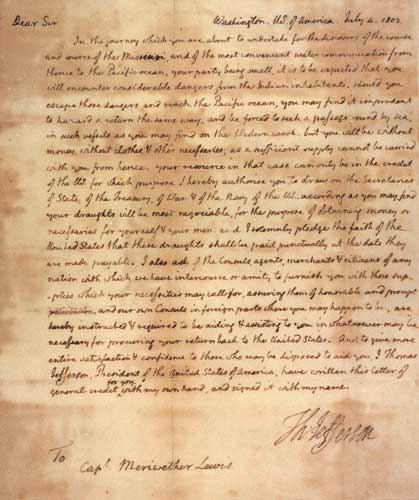 Dear Sir
Washington. US. of America. July 4. 1803.
In the journey which you are about to undertake for the discovery of the course
and source of the Missouri, and of the most convenient water communication from
thence to the Pacific ocean, your party being small, it is to be expected that you
will encounter considerable dangers from the Indian inhabitants. should you
escape those dangers and reach the Pacific ocean, you may find it imprudent
to hazard a return the same way, and be forced to seek a passage round by sea,
in such vessels as you may find on the Western coast. but you will be without
money, without clothes, & other necessaries; as a sufficient supply cannot be carried
with you from hence. your resource in that case can only be in the credit
of the US. for which purpose I hereby authorise you to draw on the Secretaries
of State, of the Treasury, of War & of the Navy of the US. according as you may find
your draughts will be most negociable, for the purpose of obtaining money or
necessaries for yourself & your men: and I solemnly pledge the faith of the
United States that these draughts shall be paid punctually at the date they
are made payable. I also ask of the Consuls, agents, merchants & citizens of any
nation with which we have intercourse or amity to furnish you with those sup-
-plies which your necessities may call for, assuring them of honorable and prompt
retribution. and our own Consuls in foreign parts where you may happen to be, are
hereby instructed & required to be aiding & assisting to you in whatsoever may be
necessary for procuring your return back to the United States. And to give more
entire satisfaction & confidence to those who may be disposed to aid you, I Thomas
Jefferson, President of the United States of America, have written this letter of
general credit for you with my own hand, and signed it with my name.
Th: Jefferson
To
Capt. Meriwether Lewis.